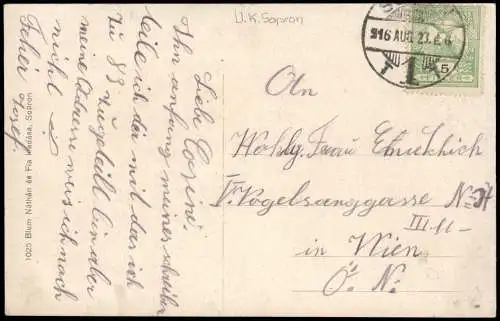 U.K. Sopron
916 AUG 23
1
5
Liebe Cosine!
Ihn anfang meines schreiben
teile ich dir mit das ich
zu 83 zugeteilt bin aber
meine Adresse weis ich noch
nicht
Fehér
Josef
1025 Blum Náthán és Fia kiadása, Sopron
An
Frau
V. Vogelsanggasse No
III
in Wien
Ö. N.